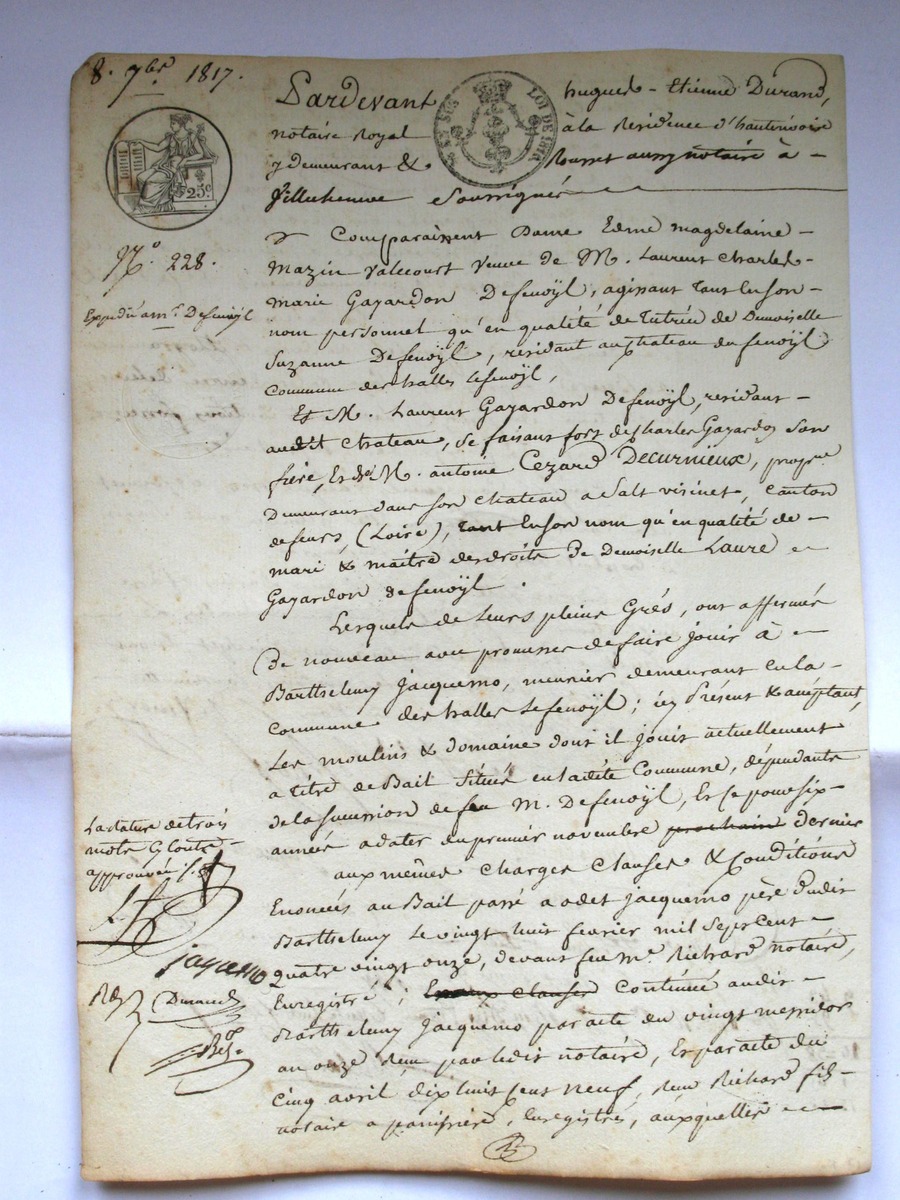 8. 7bre 1817.
Pardevant hugues - Etienne Durand,
notaire Royal à la Résidence d'hauterivoire
y demeurant & Rosset aussy notaire à -
Villecheneuve Soussignés
LOI DE 1816
25c
N.° 228.
Expédié à mr. Defenoÿl
Comparaissent Dame Edmé magdelaine -
Mazin Valcourt Veuve de M. Laurent Charles -
marie Gayardon Defenoÿl, agissant tant en son -
nom personnel qu'en qualité de tutrice de Demoiselle
Suzanne Defenoÿl, résidant au chateau du fenoÿl
Commune des halles Lefenoÿl,
Et M. Laurent Gayardon Defenoÿl, résidant -
audit chateau, se faisant fort de Charles Gayardon son
frère, Et de M. antoine Cezard Decurnieux, propre
Demeurant dans son chateau a Salt visinet, Canton
defeurs, (Loire), tant en son nom qu'en qualité de -
mari & maitre des droits De Demoiselle Laure
Gayardon defenoÿl.
Lesquels de Leurs pleins Grés, ont affermés
De nouveau avec promesses de faire jouir à
Barthelemy jacquemo, meunier demeurant en la -
Commune des halles Lefenoÿl; icy Présent & acéptant,
Les moulins & domaine dont il jouit actuellement
a titre de Bail Situés en ladite Commune, dépendants
de la succession de feu M. Defenoÿl, Et ce pour six -
années a dater du premier novembre prochain dernier
aux mêmes Charges Clauses & Conditions
Enoncées au Bail passé a odet jacquemo père dudit
Barthelemy Le vingt huit fevrier mil Sept cent -
Quatre vingt onze, devant feu me. Richard notaire,
Enregistré; Et aux Clauses Contenue audit -
Barthelemy jacquemo par acte du vingt messidor
an onze reçu par ledit notaire, Et par acte du
Cinq avril dix huit Cent Neuf, reçu Richard fils -
notaire a panissière, Enregistrés, auxquelles
La rature de trois
mots Cy Contre -
approuvée
jaquemo
Durand